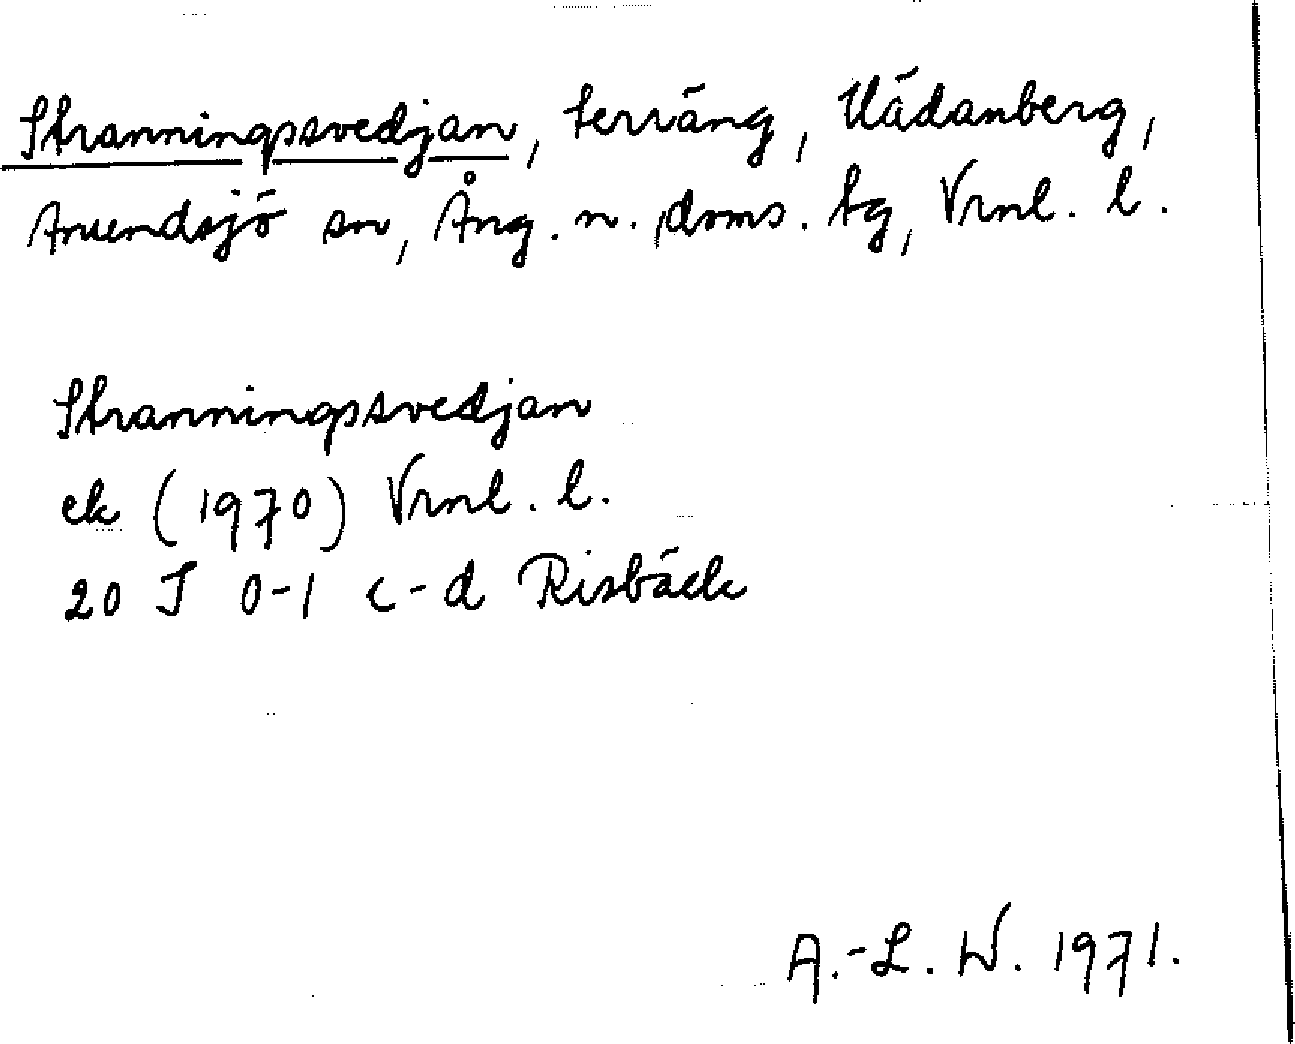 Stranningssvedjan, terräng, Uädanberg,
Anundsjö sn, Ång. n. doms. tg, Vrnl. l.
Stranningssvedjan
ek (1970) Vrnl. l.
20 J 0-1 c-d Risbäck
A.-L. W. 1971.